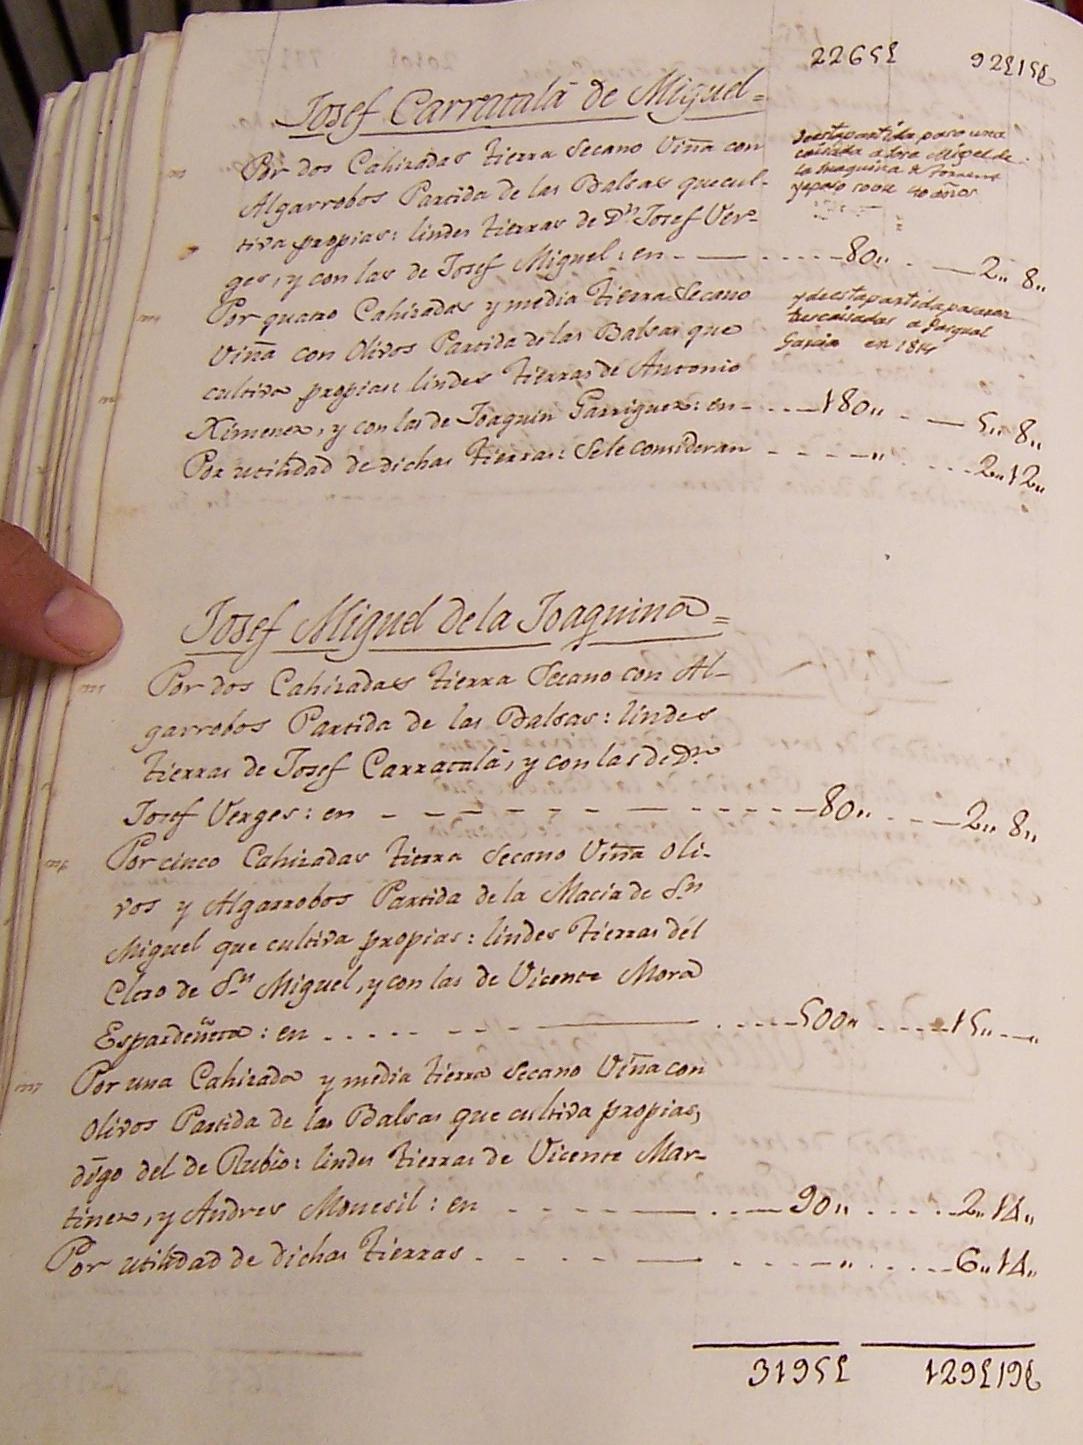 2265£ 92£15$
Josef Carratalá de Miguel=
Por dos Cahizadas tierra Secano Viña con
Algarrobos Partida de las Balsas que cul-
tiva propias: lindes tierras de Dn. Josef Ver-
ges, y con las de Josef Miguel: en - — - - - - - 80,, - — 2,, 8,,
de esta partida paso una
caisada a Jose Miguel de
la Juaquina
y el paso 40 años
Por quatro Cahizadas y media tierra Secano
Viña con Olivos Partida de las Balsas que
cultiva propias: lindes tierras de Antonio
Ximenez, y con las de Joaquin Garrigues: en - - - - 180,, - - — 5,, 8,,
y de esta partida pasaron
tres caisadas a Pasqual
Garcia en 1814
Por utilidad de dichas tierras: Sele consideran - - - - ,, - - - 2,, 12,,
Josef Miguel de la Joaquina=
Por dos Cahizadas tierra Secano con Al-
garrobos Partida de las Balsas: lindes
tierras de Josef Carratalá, y con las de Dn.
Josef Verges: en - - - - - - — - - - - - 80,, - - — 2,, 8,,
Por cinco Cahizadas tierra Secano Viña oli-
vos y Algarrobos Partida de la Macia de Sn.
Miguel que cultiva propias: lindes tierras del
Clero de Sn. Miguel, y con las de Vicente Mora
Espardeñera: en . . . . . - - - — . . . . 500,, . . . . 15,, — ,,
Por una Cahizada y media tierra Secano Viña con
olivos Partida de las Balsas que cultiva propias,
digo del de Rubio: lindes tierras de Vicente Mar-
tinez, y Andres Monesil: en - - - - — . . — 90,, . . . . 2,, 14,,
Por utilidad de dichas tierras - - - - — - - - - ,, . . . . 6,, 14,,
3195£ 129£16$